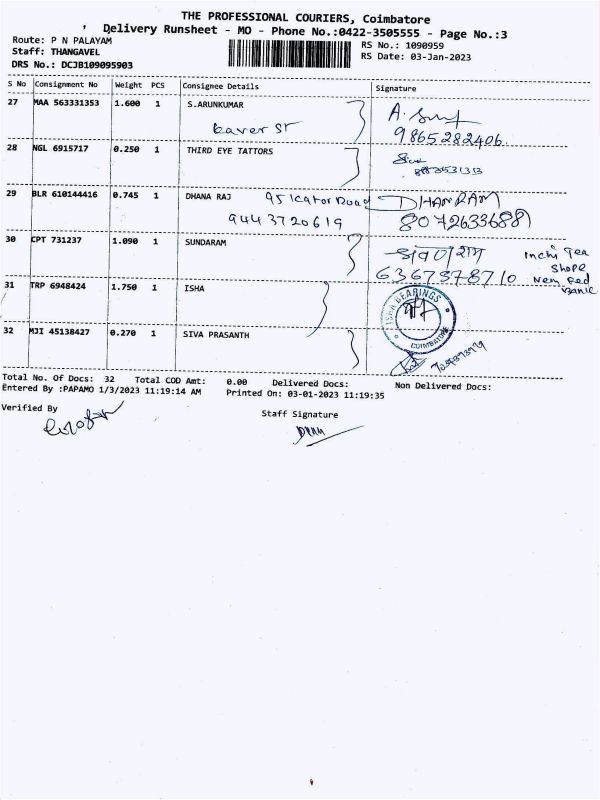 THE PROFESSIONAL COURIERS, Coimbatore
Delivery Runsheet - MO - Phone No.:0422-3505555 - Page No.:3
Route: P N PALAYAM
RS No.: 1090959
Staff: THANGAVEL
RS Date: 03-Jan-2023
DRS No.: DCJB109095903
S No Consignment No Weight PCS Consignee Details Signature
27 MAA 563331353 1.600 1 S.ARUNKUMAR
9865282406
28 NGL 6915717 0.250 1 THIRD EYE TATTORS
29 BLR 610144416 0.745 1 DHANA RAJ DHANRAM
9443720619 8072633688
30 CPT 731237 1.090 1 SUNDARAM
Inchi Tea
Shope
6367378710
31 TRP 6948424 1.750 1 ISHA
ISHA BEARINGS
COIMBATORE
32 MJI 45138427 0.270 1 SIVA PRASANTH
Total No. Of Docs: 32 Total COD Amt: 0.00 Delivered Docs: Non Delivered Docs:
Entered By :PAPAMO 1/3/2023 11:19:14 AM Printed On: 03-01-2023 11:19:35
Verified By
Staff Signature